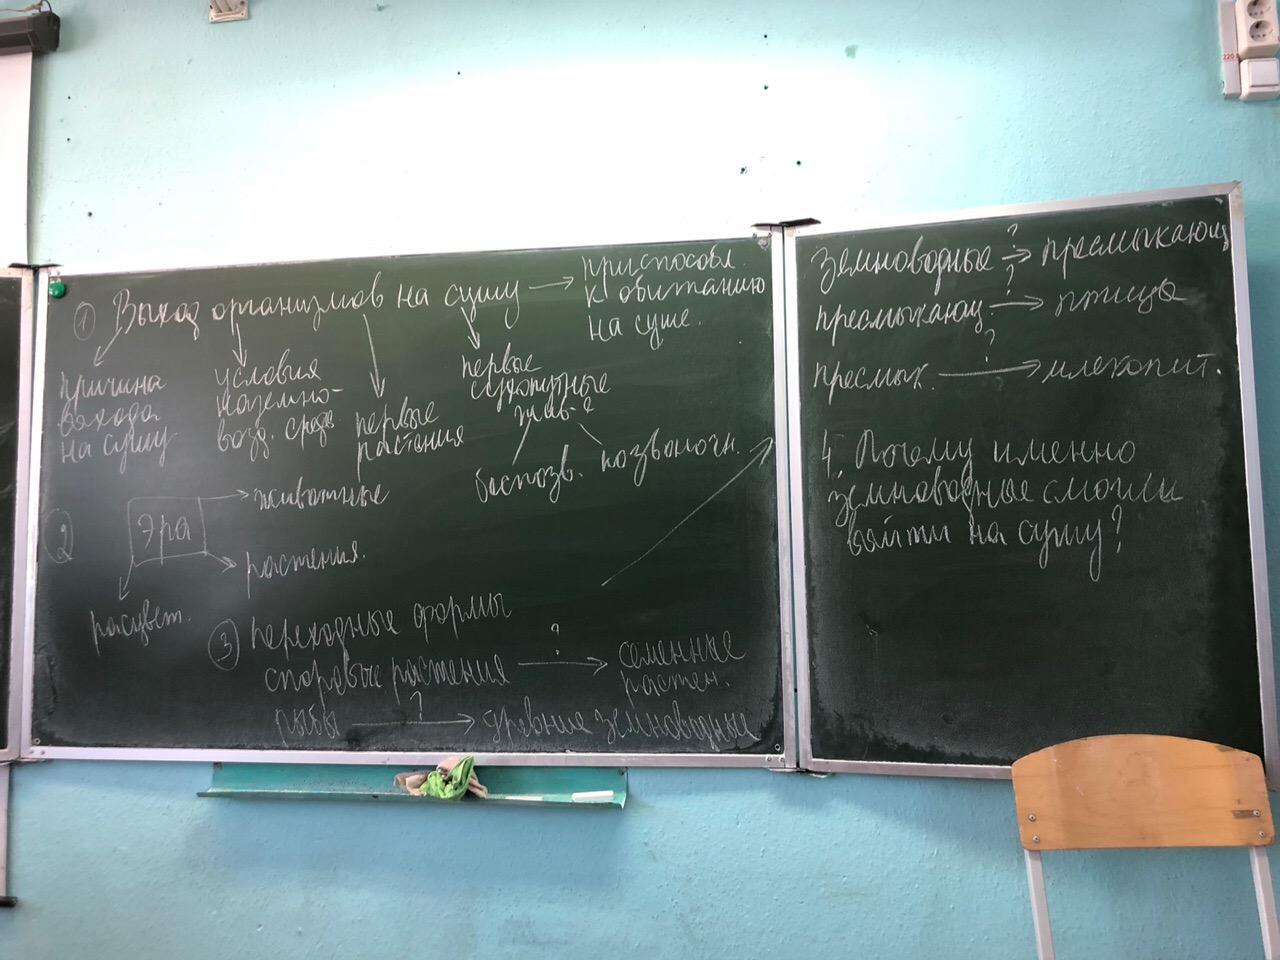 ① Выход организмов на сушу → приспособл. к обитанию на суше.
причина
выхода
на сушу
условия
наземно-
возд. среде
первые
растения
первые
сухопутные
жив-е
беспозв. позвоночн.
② Эра
животные
растения.
расцвет.
③ переходные формы
споровые растения ? → семенные
растен.
рыбы ? → древние земноводные
земноводные ? → пресмыкающ
пресмыкающ. ? → птицы
пресмык. ? → млекопит.
4. Почему именно
земноводные смогли
выйти на сушу?
220 В